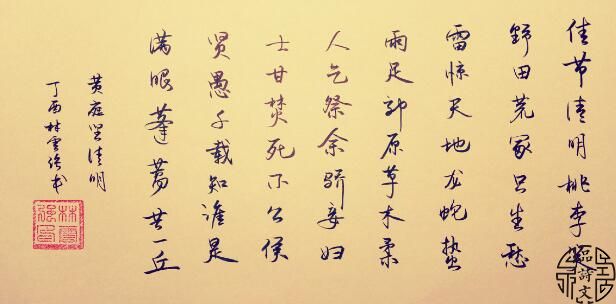 佳节清明桃李笑
野田荒冢只生愁
雷惊天地龙蛇蛰
雨足郊原草木柔
人乞祭余骄妾妇
士甘焚死不公侯
贤愚千载知谁是
满眼蓬蒿共一丘
黄庭坚清明
丁酉林雲强书
林雲强印
詩文